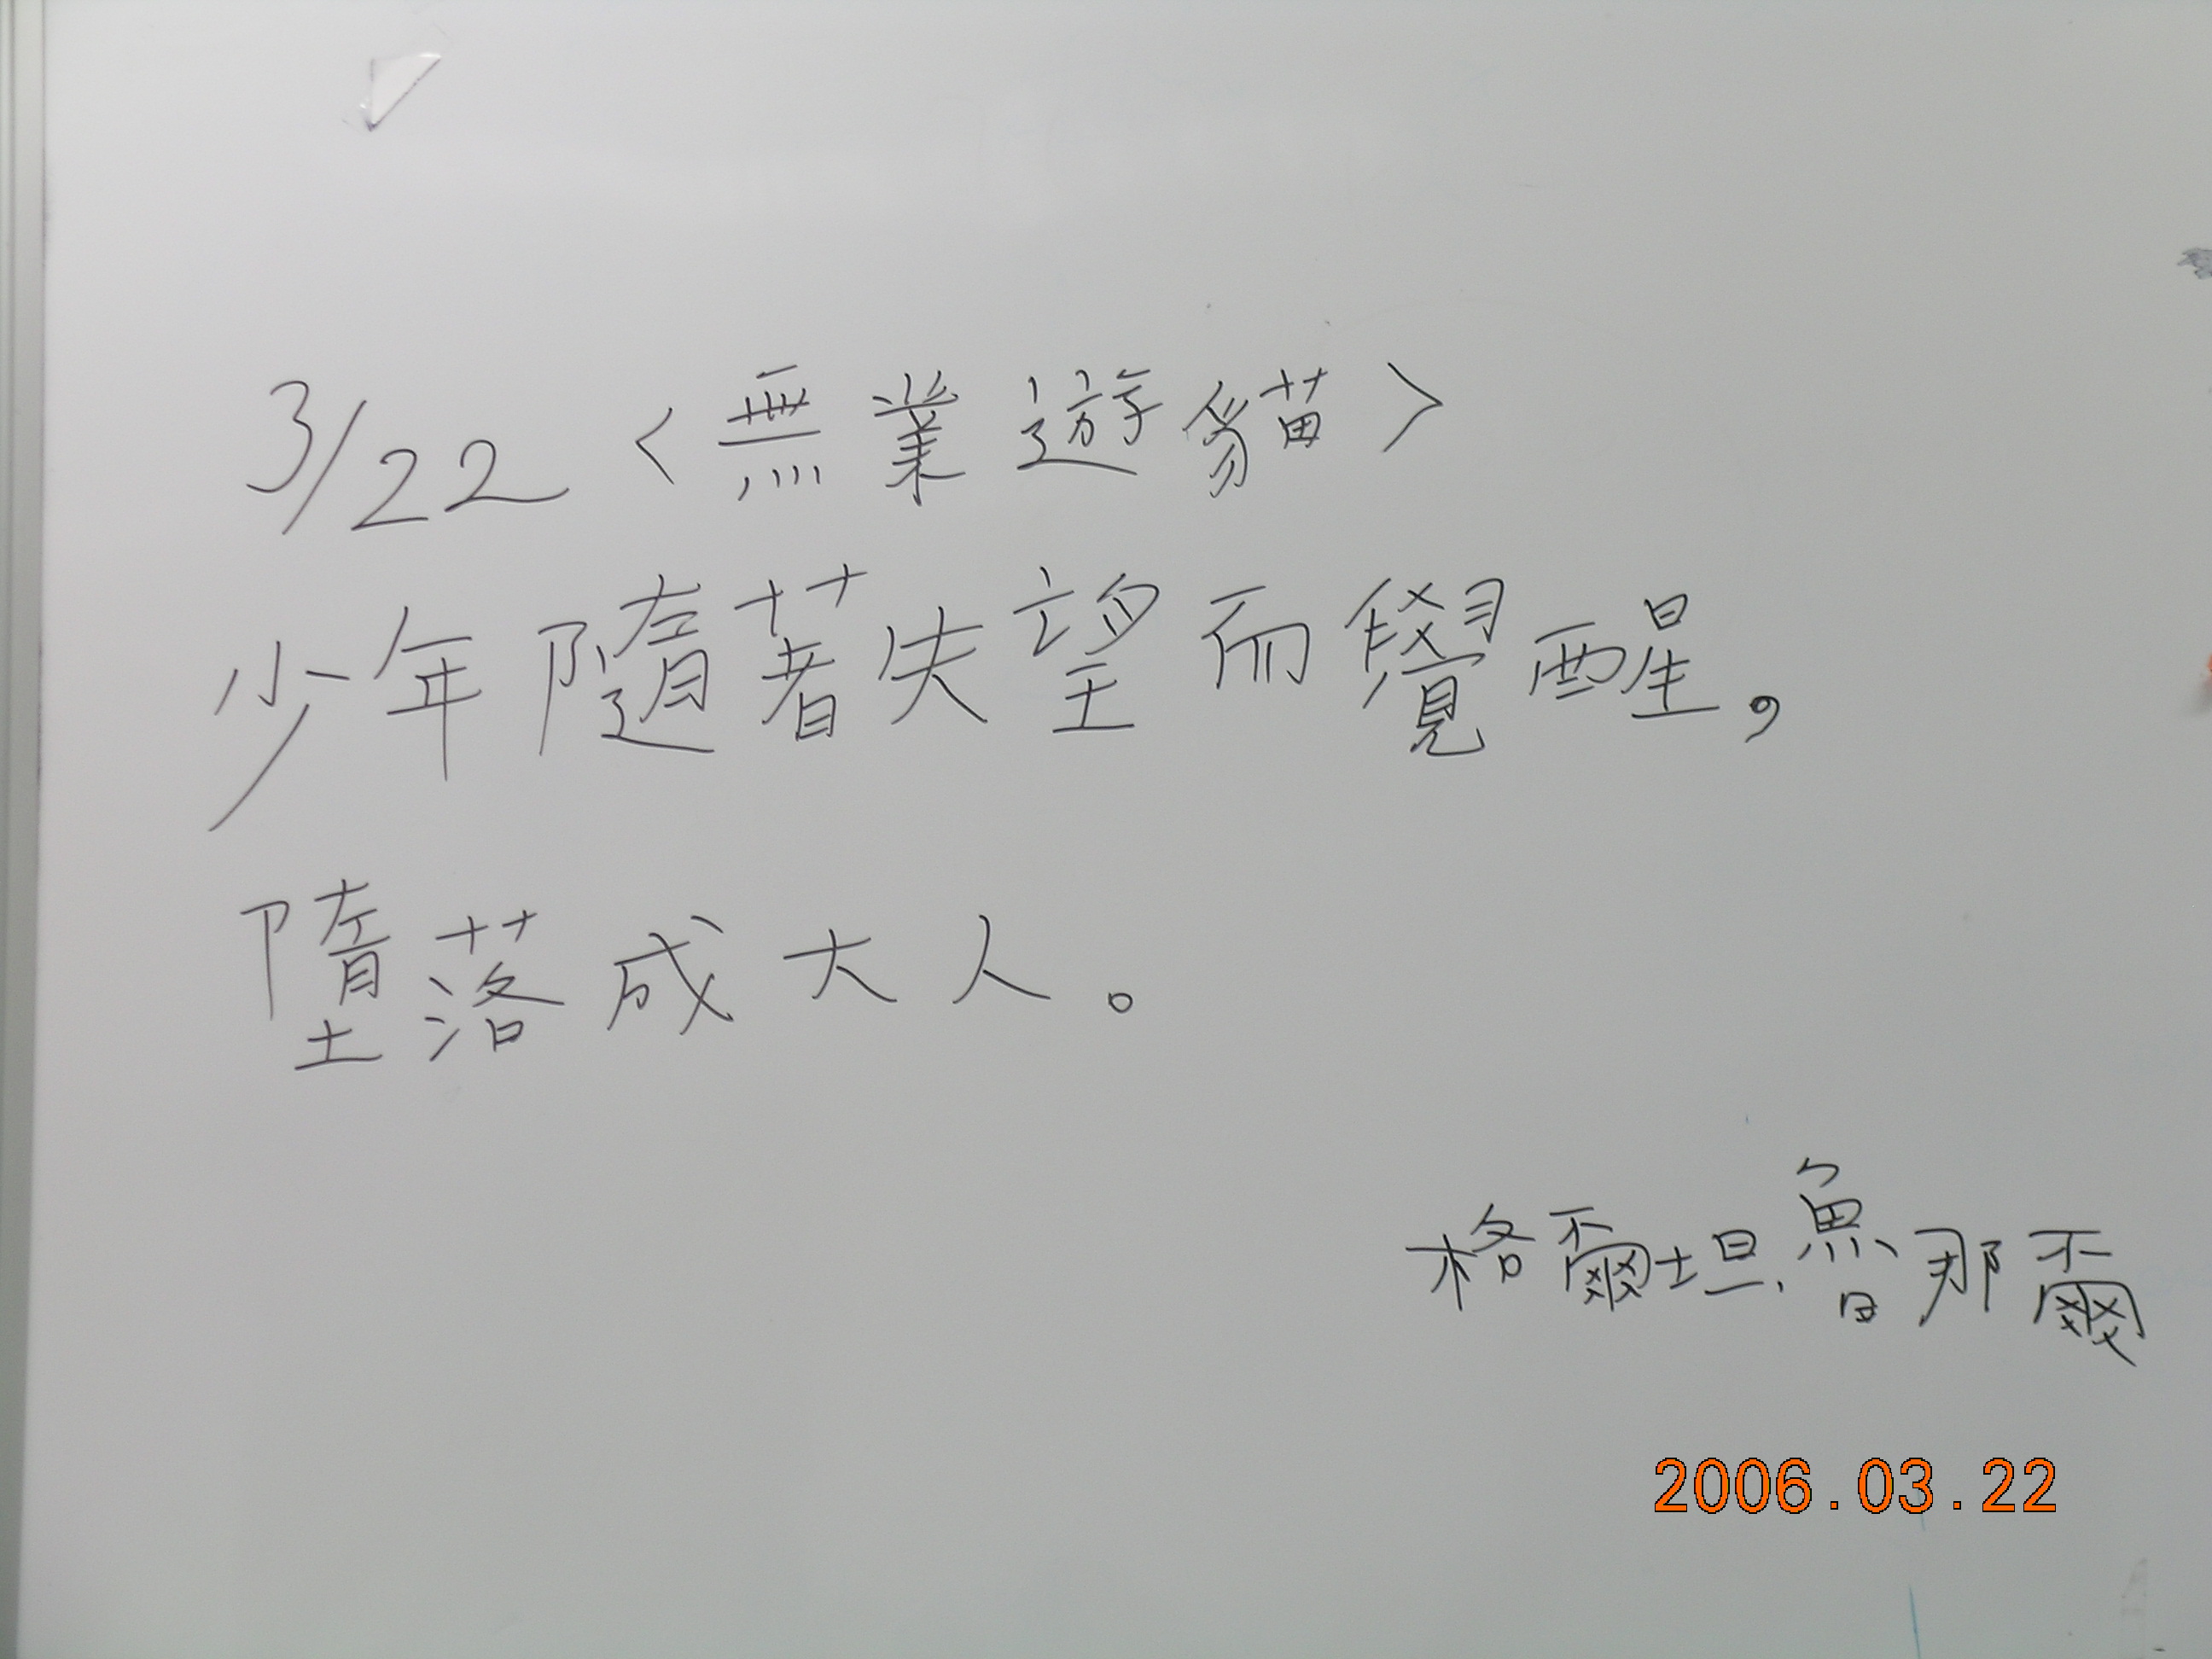 3/22 <無業遊貓>
少年隨著失望而覺醒，
墮落成大人。
格爾坦.魯那爾
2006.03.22